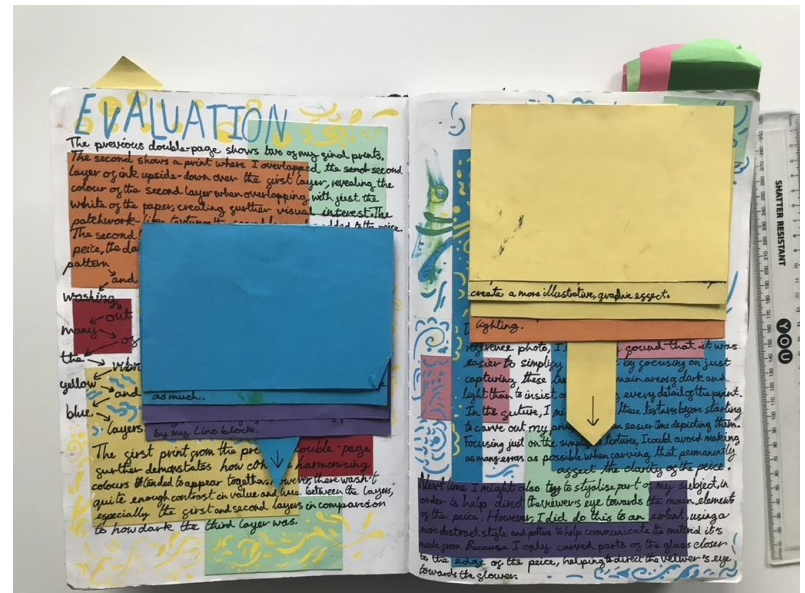 EVALUATION
The previous double-page shows two of my final prints,
The second shows a print where I overlapped the second
layer of ink upside-down over the first layer, revealing the
colour of the second layer when overlapping with just the
white of the paper, creating further visual interest. The
patchwork-like
The second
peice, the
pattern
and
washing
out
many
of
the
vibr
yellow
and
blue
layers
as much.
by my lino block.
The first print from the pre double-page
further demonstrates how harmonising
colours tended to appear together. However, there wasn't
quite enough contrast in value and hue between the layers,
especially the first and second layers in comparison
to how dark the third layer was.
create a more illustrative, graphic effect.
lighting.
reference photo, I found that it was
easier to simplify by focusing on just
capturing these main areas of dark and
light than to insist every detail of the print.
In the future, I these textures before starting
to carve out my easier time depicting them.
Focusing just on the simplified textures, I could avoid making
as many errors as possible when carving that permanently
affect the clarity of the peice.
Next time I might also try to stylise part of my subject, in
order to help direct the viewer's eye towards the main elements
of the peice. However I did do this to an extent, using a
more abstract style and pattern to help communicate the material it's
made from. Because I only carved parts of the glass closer
to the edge of the peice, helping to direct the veiwer's eye
towards the flower.
SHATTER RESISTANT
YOU